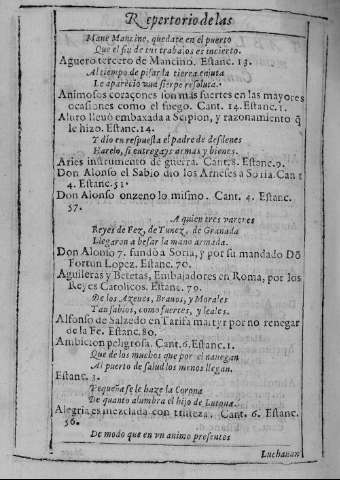 Repertorio de las
Mane Mancino, quedate en el puerto
Que el fin de tus trabajos es incierto.
Aguero tercero de Mancino. Estanc. 13.
Al tiempo de pisar la tierra enjuta
Le aparecio vna sierpe resoluta.
Animosos coraçones son mas fuertes en las mayores
ocasiones como el fuego. Cant. 14. Estanc. 1.
Aluro lleuò embaxada a Scipion, y razonamiento q̃
le hizo. Estanc. 14.
Y dio en respuesta el padre de
Harelo, si entregays armas y bienes.
Aries instrumento de guerra. Cant. 8. Estanc. 9.
Don Alonso el Sabio dio los Arneses a Soria. Cant
4. Estanc. 51.
Don Alonso onzeno lo mismo. Cant. 4. Estanc.
57.
A quien tres varones
Reyes de Fez, de Tunez, de Granada
Llegaron a besar la mano armada.
Don Alonso 7. fundò a Soria, y por su mandado Dõ
Fortun Lopez. Estanc. 70.
Aguileras y Betetas, Embajadores en Roma, por los
Reyes Catolicos. Estanc. 70.
De los Azeues, Brauos, y Morales
Tan sabios, como fuertes, y leales.
Alfonso de Salzedo en Tarifa martyr por no renegar
de la Fe. Estanc. 80.
Ambicion peligrosa. Cant. 6. Estanc. 1.
Que de los muchos que por el nauegan
Al puerto de salud los menos llegan.
Estanc. 3.
Pequeña se le haze la Corona
De quanto alumbra el hijo de Latona.
Alegria es mezclada con tristeza. Cant. 6. Estanc.
56.
De modo que en vn animo presentes
Luchauan